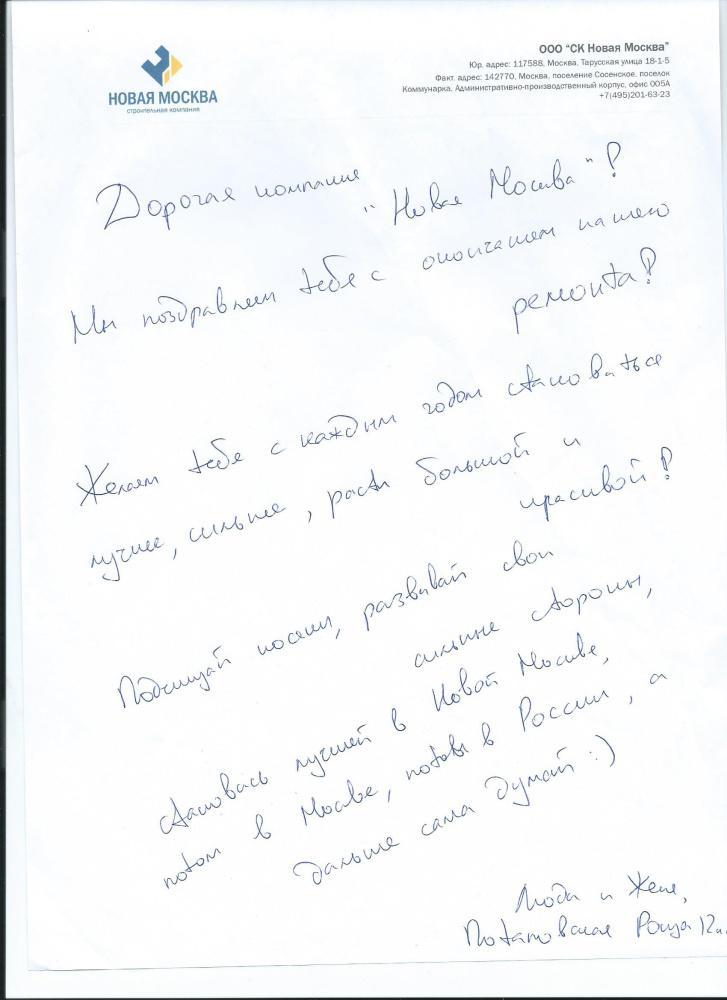 НОВАЯ МОСКВА
строительная компания
ООО "СК Новая Москва"
Юр. адрес: 117588, Москва, Тарусская улица 18-1-5
Факт. адрес: 142770, Москва, поселение Сосенское, поселок
Коммунарка, Административно-производственный корпус, офис 005А
+7(495)201-63-23
Дорогая компания
"Новая Москва"!
Мы поздравляем тебя с окончанием нашего
ремонта!
Желаем тебе с каждым годом становиться
лучше, сильнее, расти большой и
красивой!
Подчищай косяки, развивай свои
сильные стороны,
становись лучшей в Новой Москве,
потом в Москве, потом в России, а
дальше сама думай :)
Люда и Женя,
Потаповская Роща 12к.